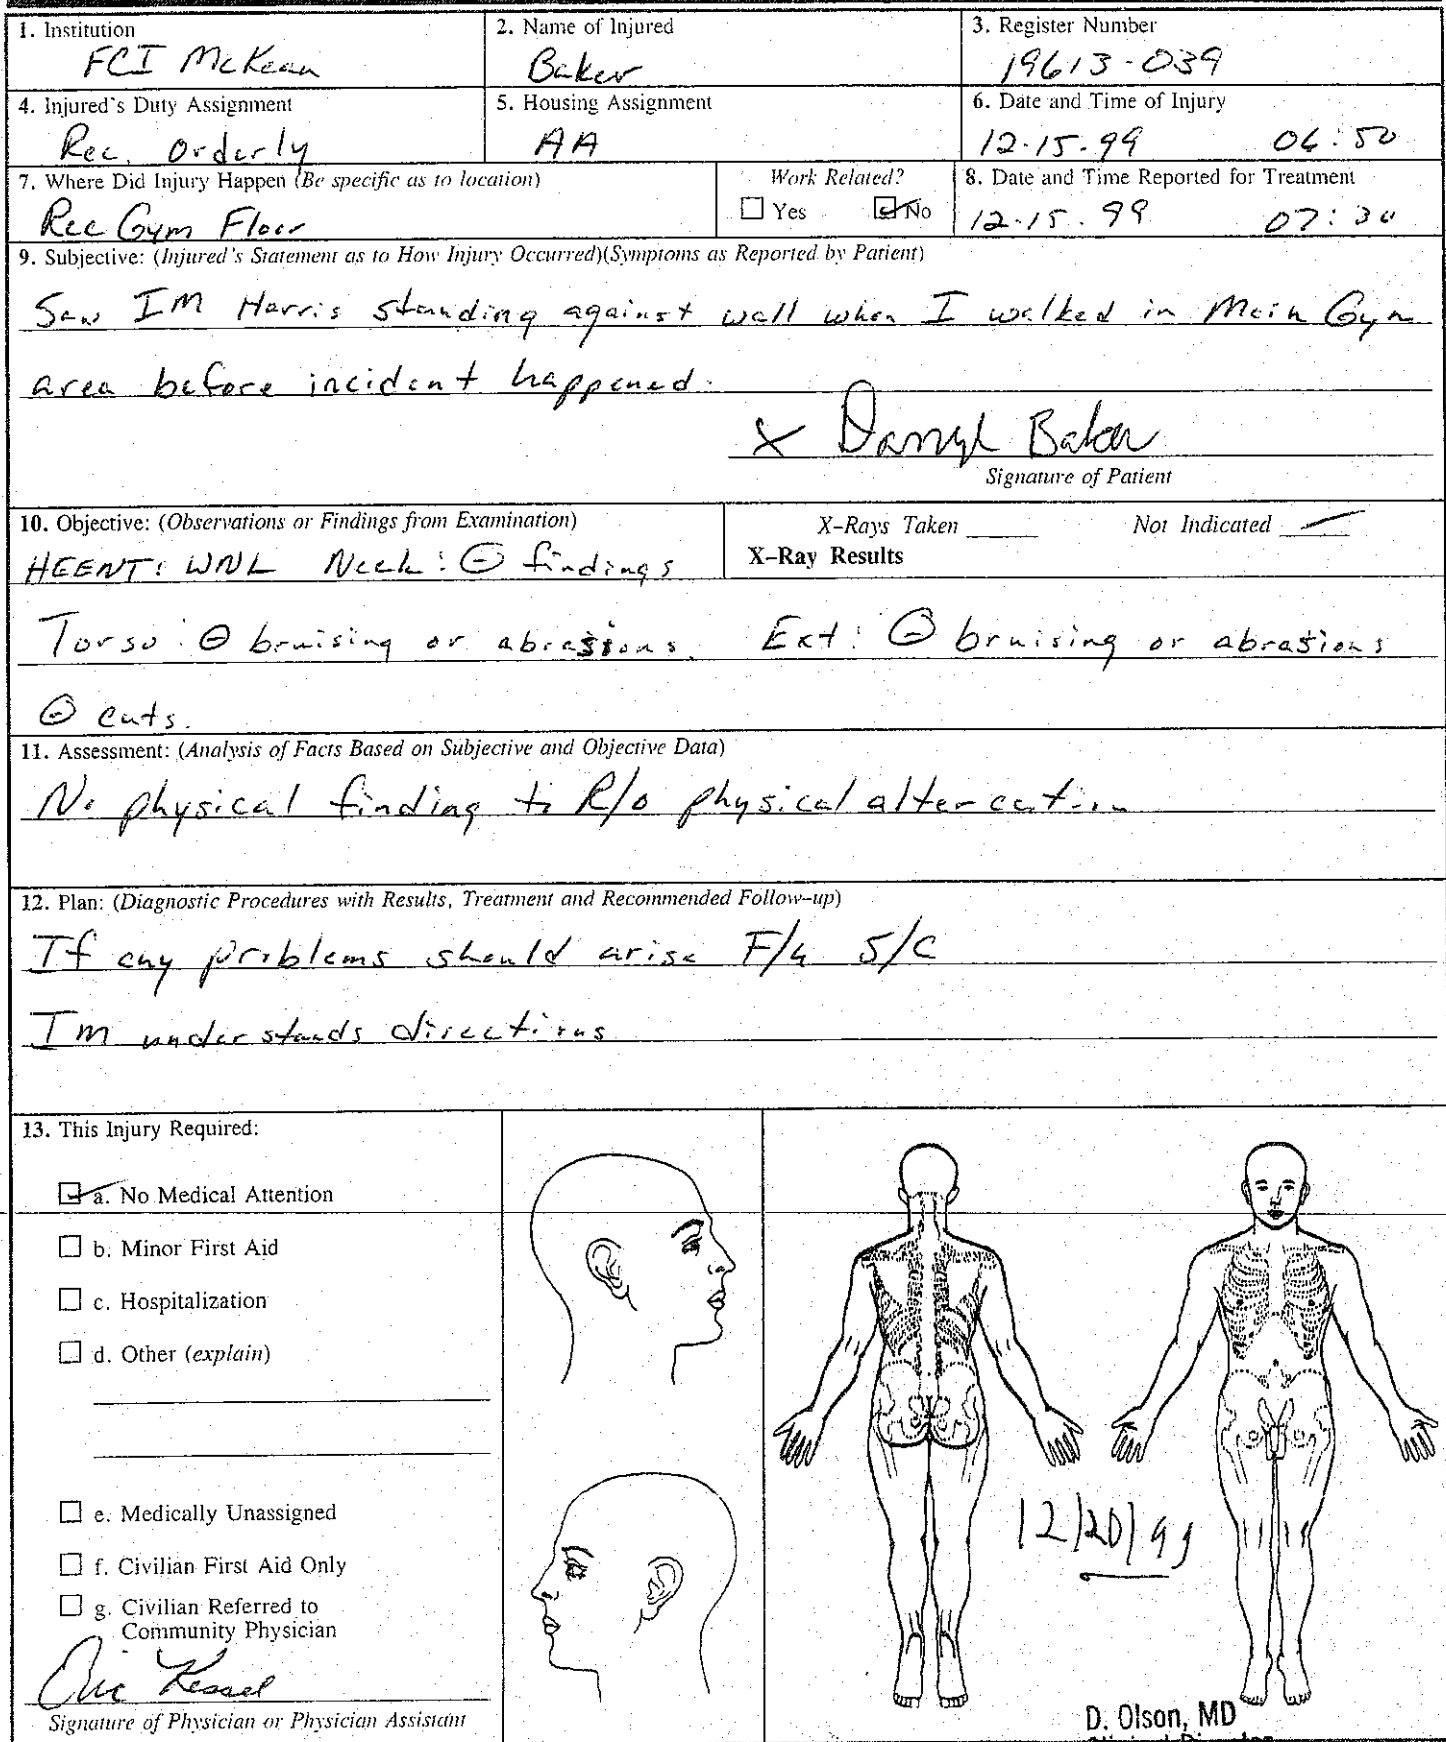 1. Institution
FCI McKean
2. Name of Injured
Baker
3. Register Number
19613-039
4. Injured's Duty Assignment
Rec. Orderly
5. Housing Assignment
AA
6. Date and Time of Injury
12-15-99 06:50
7. Where Did Injury Happen (Be specific as to location)
Rec Gym Floor
Work Related?
Yes No
8. Date and Time Reported for Treatment
12-15-99 07:30
9. Subjective: (Injured's Statement as to How Injury Occurred)(Symptoms as Reported by Patient)
Saw IM Harris standing against wall when I walked in Main Gym
area before incident happened.
X Darryl Baker
Signature of Patient
10. Objective: (Observations or Findings from Examination)
X-Rays Taken Not Indicated
X-Ray Results
HEENT: WNL Neck: ⊖ findings
Torso: ⊖ bruising or abrasions. Ext: ⊖ bruising or abrasions
⊖ cuts.
11. Assessment: (Analysis of Facts Based on Subjective and Objective Data)
No physical finding to R/o physical altercation
12. Plan: (Diagnostic Procedures with Results, Treatment and Recommended Follow-up)
If any problems should arise F/u S/C
IM understands directions
13. This Injury Required:
a. No Medical Attention
b. Minor First Aid
c. Hospitalization
d. Other (explain)
e. Medically Unassigned
f. Civilian First Aid Only
g. Civilian Referred to
Community Physician
Signature of Physician or Physician Assistant
12/20/99
D. Olson, MD